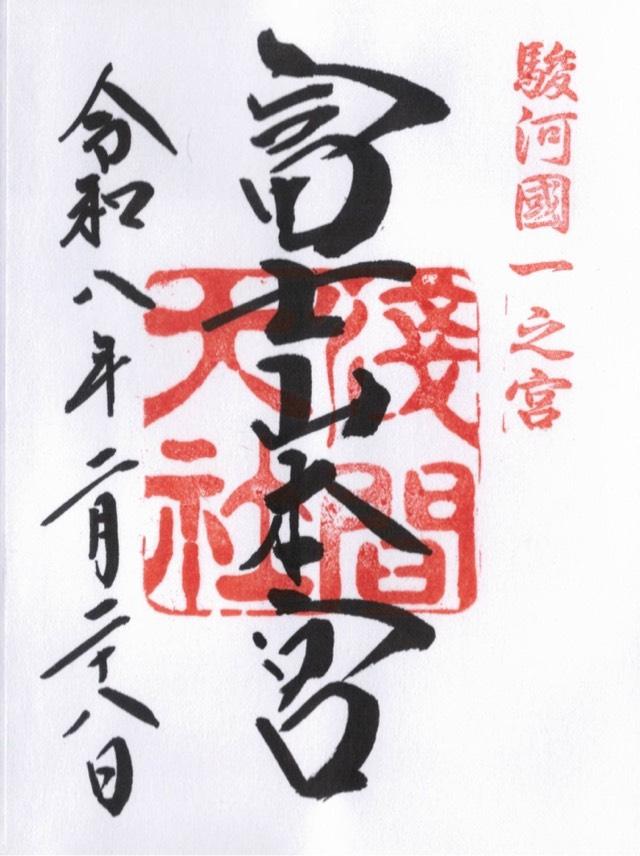 駿河國一之宮
富士山本宮
淺間大社
令和八年二月二十八日